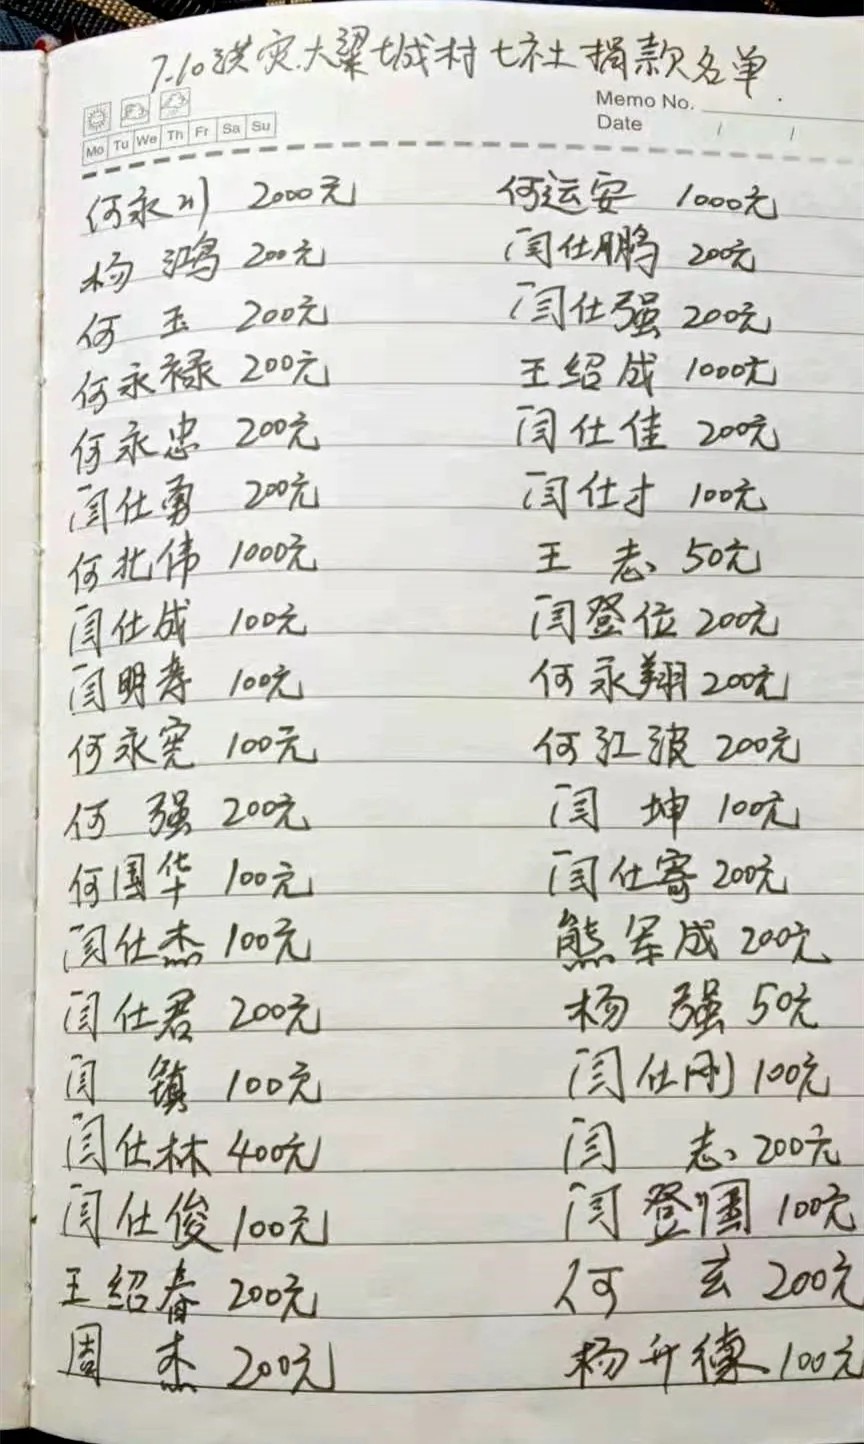 7.10洪灾大梁城村七社捐款名单
Memo No.
Date / /
Mo Tu We Th Fr Sa Su
何永川 2000元 何运安 1000元
杨鸿 200元 闫仕鹏 200元
何玉 200元 闫仕强 200元
何永禄 200元 王绍成 1000元
何永忠 200元 闫仕佳 200元
闫仕勇 200元 闫仕才 100元
何北伟 1000元 王志 50元
闫仕成 100元 闫登位 200元
闫明寿 100元 何永翔 200元
何永宪 100元 何江波 200元
何强 200元 闫坤 100元
何国华 100元 闫仕寄 200元
闫仕杰 100元 熊军成 200元
闫仕君 200元 杨强 50元
闫镇 100元 闫仕刚 100元
闫仕林 400元 闫志 200元
闫仕俊 100元 闫登国 100元
王绍春 200元 何玄 200元
周杰 200元 杨升德 100元